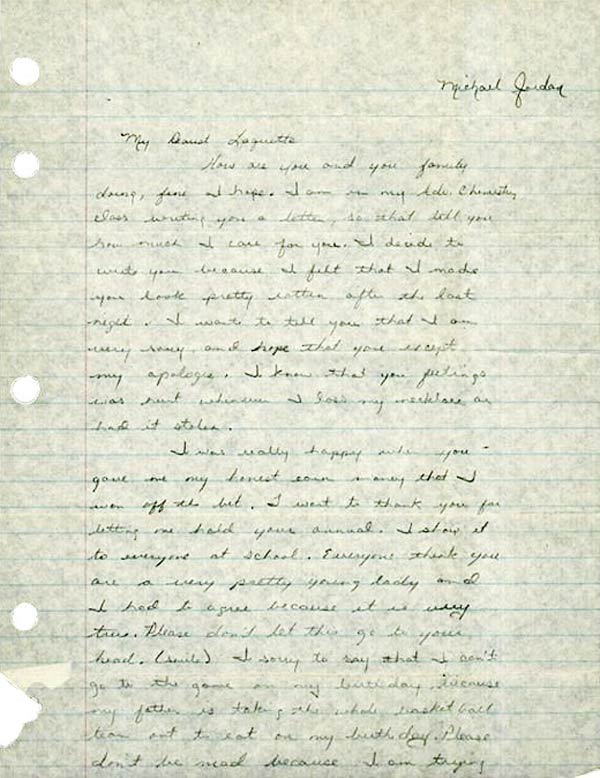 Michael Jordan
My Dearest Laquette
How are you and you family
doing, fine I hope. I am in my Adv. Chemistry
class writing you a letter, so that tell you
how much I care for you. I decide to
write you because I felt that I made
you look pretty rotten after the last
night. I want to tell you that I am
very sorry and hope that you except
my apologie. I know that you feelings
was hurt whenever I loss my necklace or
had it stolen.
I was really happy when you
gave me my honest earn money that I
won off the bet. I want to thank you for
letting me hold your annual. I show it
to everyone at school. Everyone think you
are a very pretty young lady and
I had to agree because it is very
true. Please don't let this go to your
head. (smile) I sorry to say that I can't
go to the game on my birthday because
my father is taking the whole basketball
team out to eat on my birthday. Please
don't be mad because I am trying